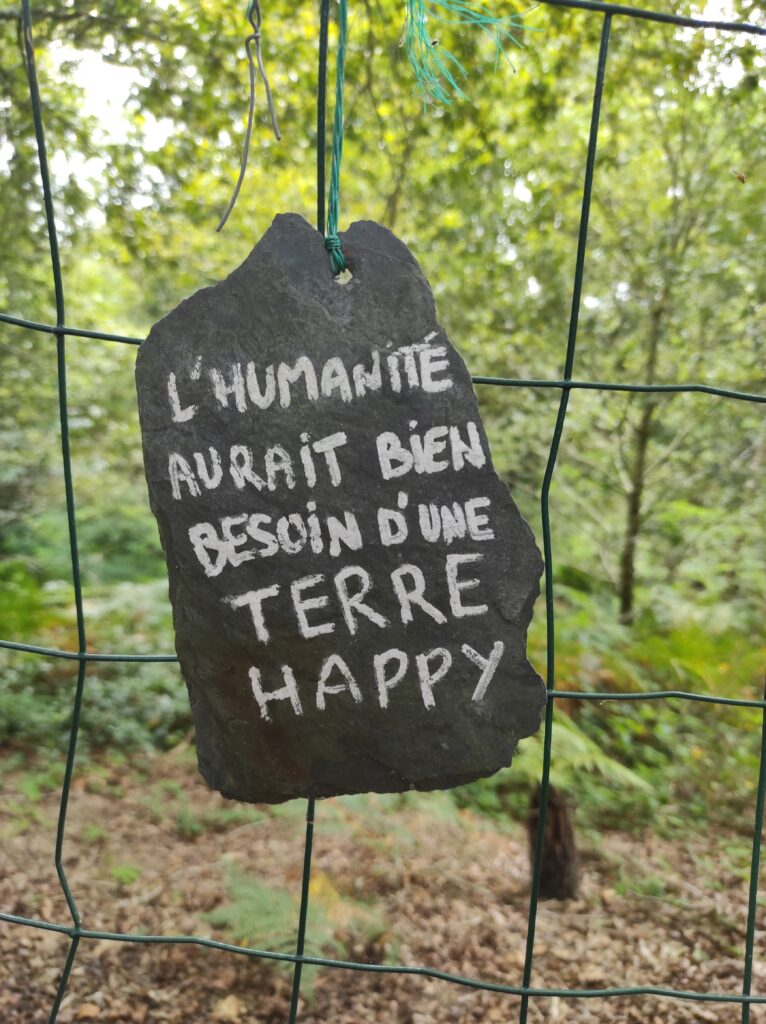 L'HUMANITÉ
AURAIT BIEN
BESOIN D'UNE
TERRE
HAPPY